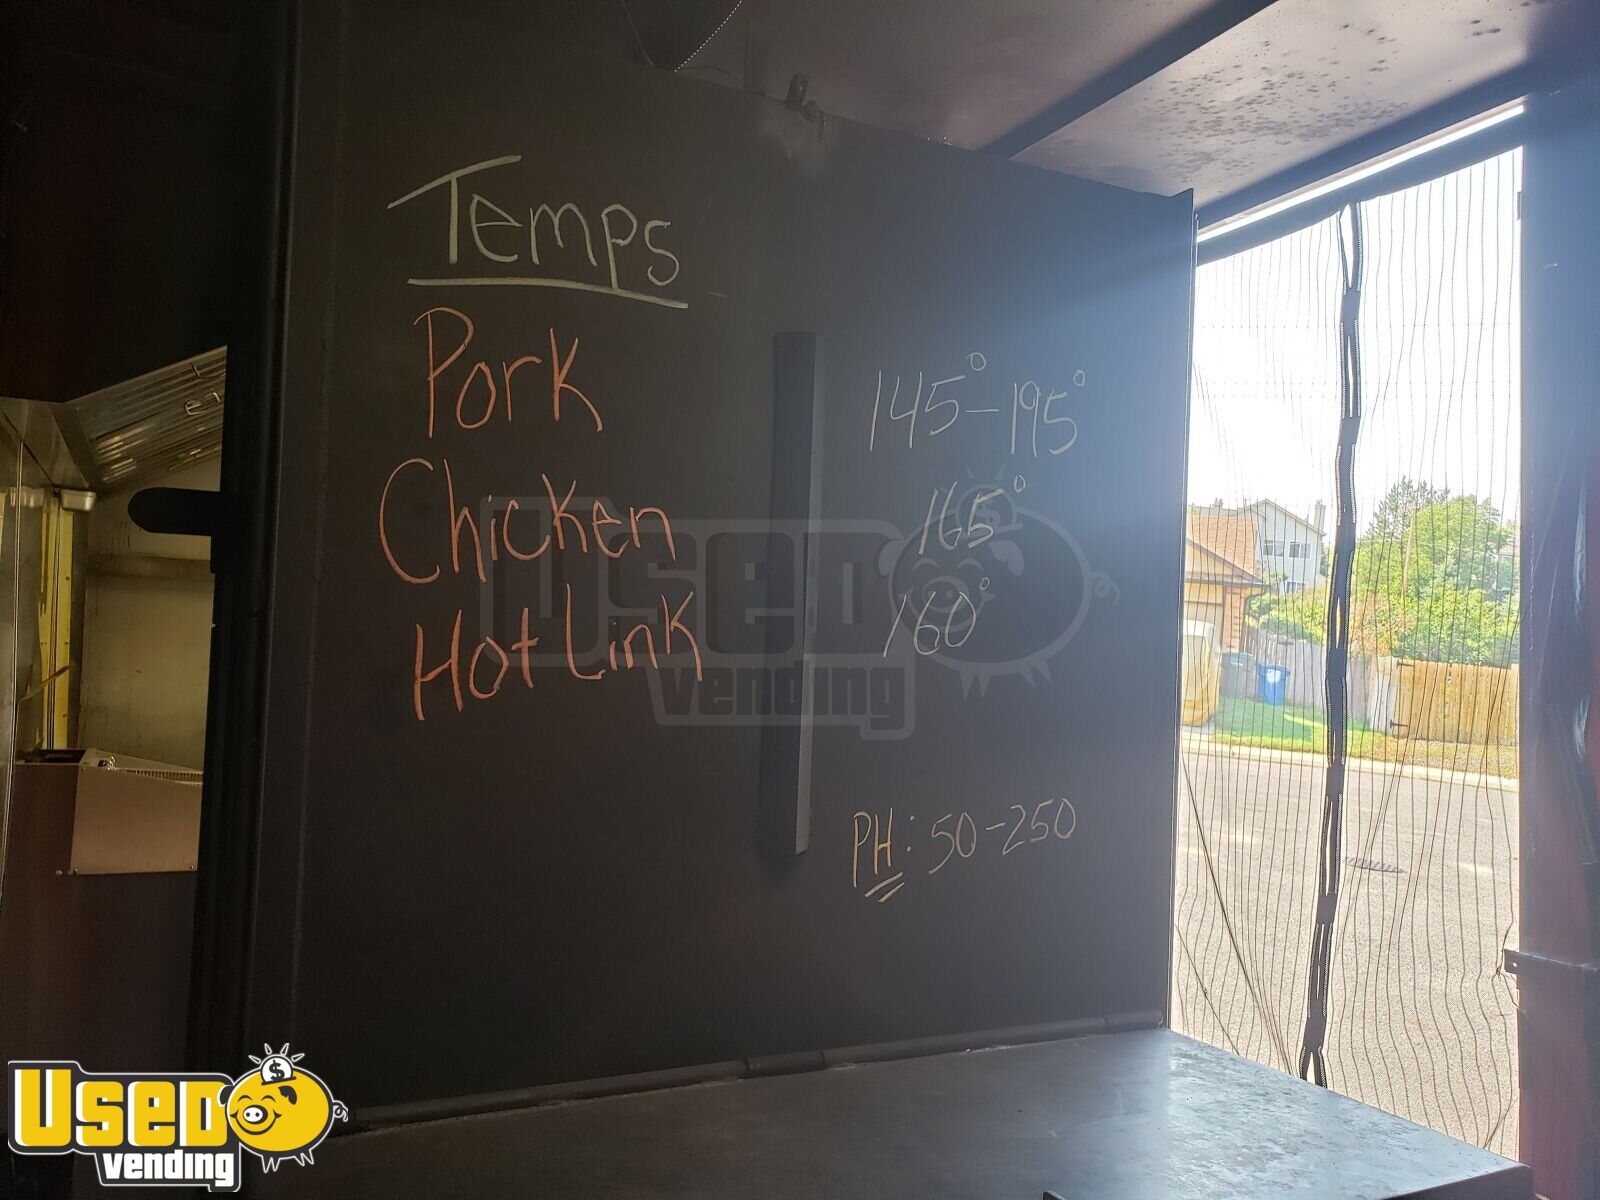 Temps
Pork 145°-195°
Chicken 165°
Hot Link 160°
PH: 50-250
Used
Vending
$
Used
Vending
$